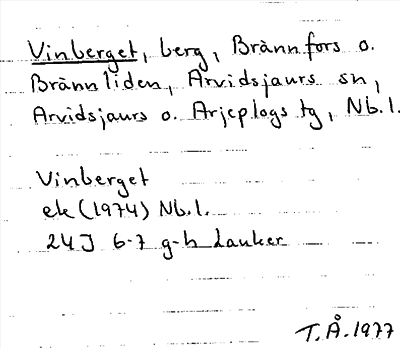 Vinberget, berg, Brännfors o.
Brännliden, Arvidsjaurs sn,
Arvidsjaurs o. Arjeplogs tg, Nb.l.
Vinberget
ek (1974) Nb.l.
24J 6-7 g-h Lauker
T.Å. 1977